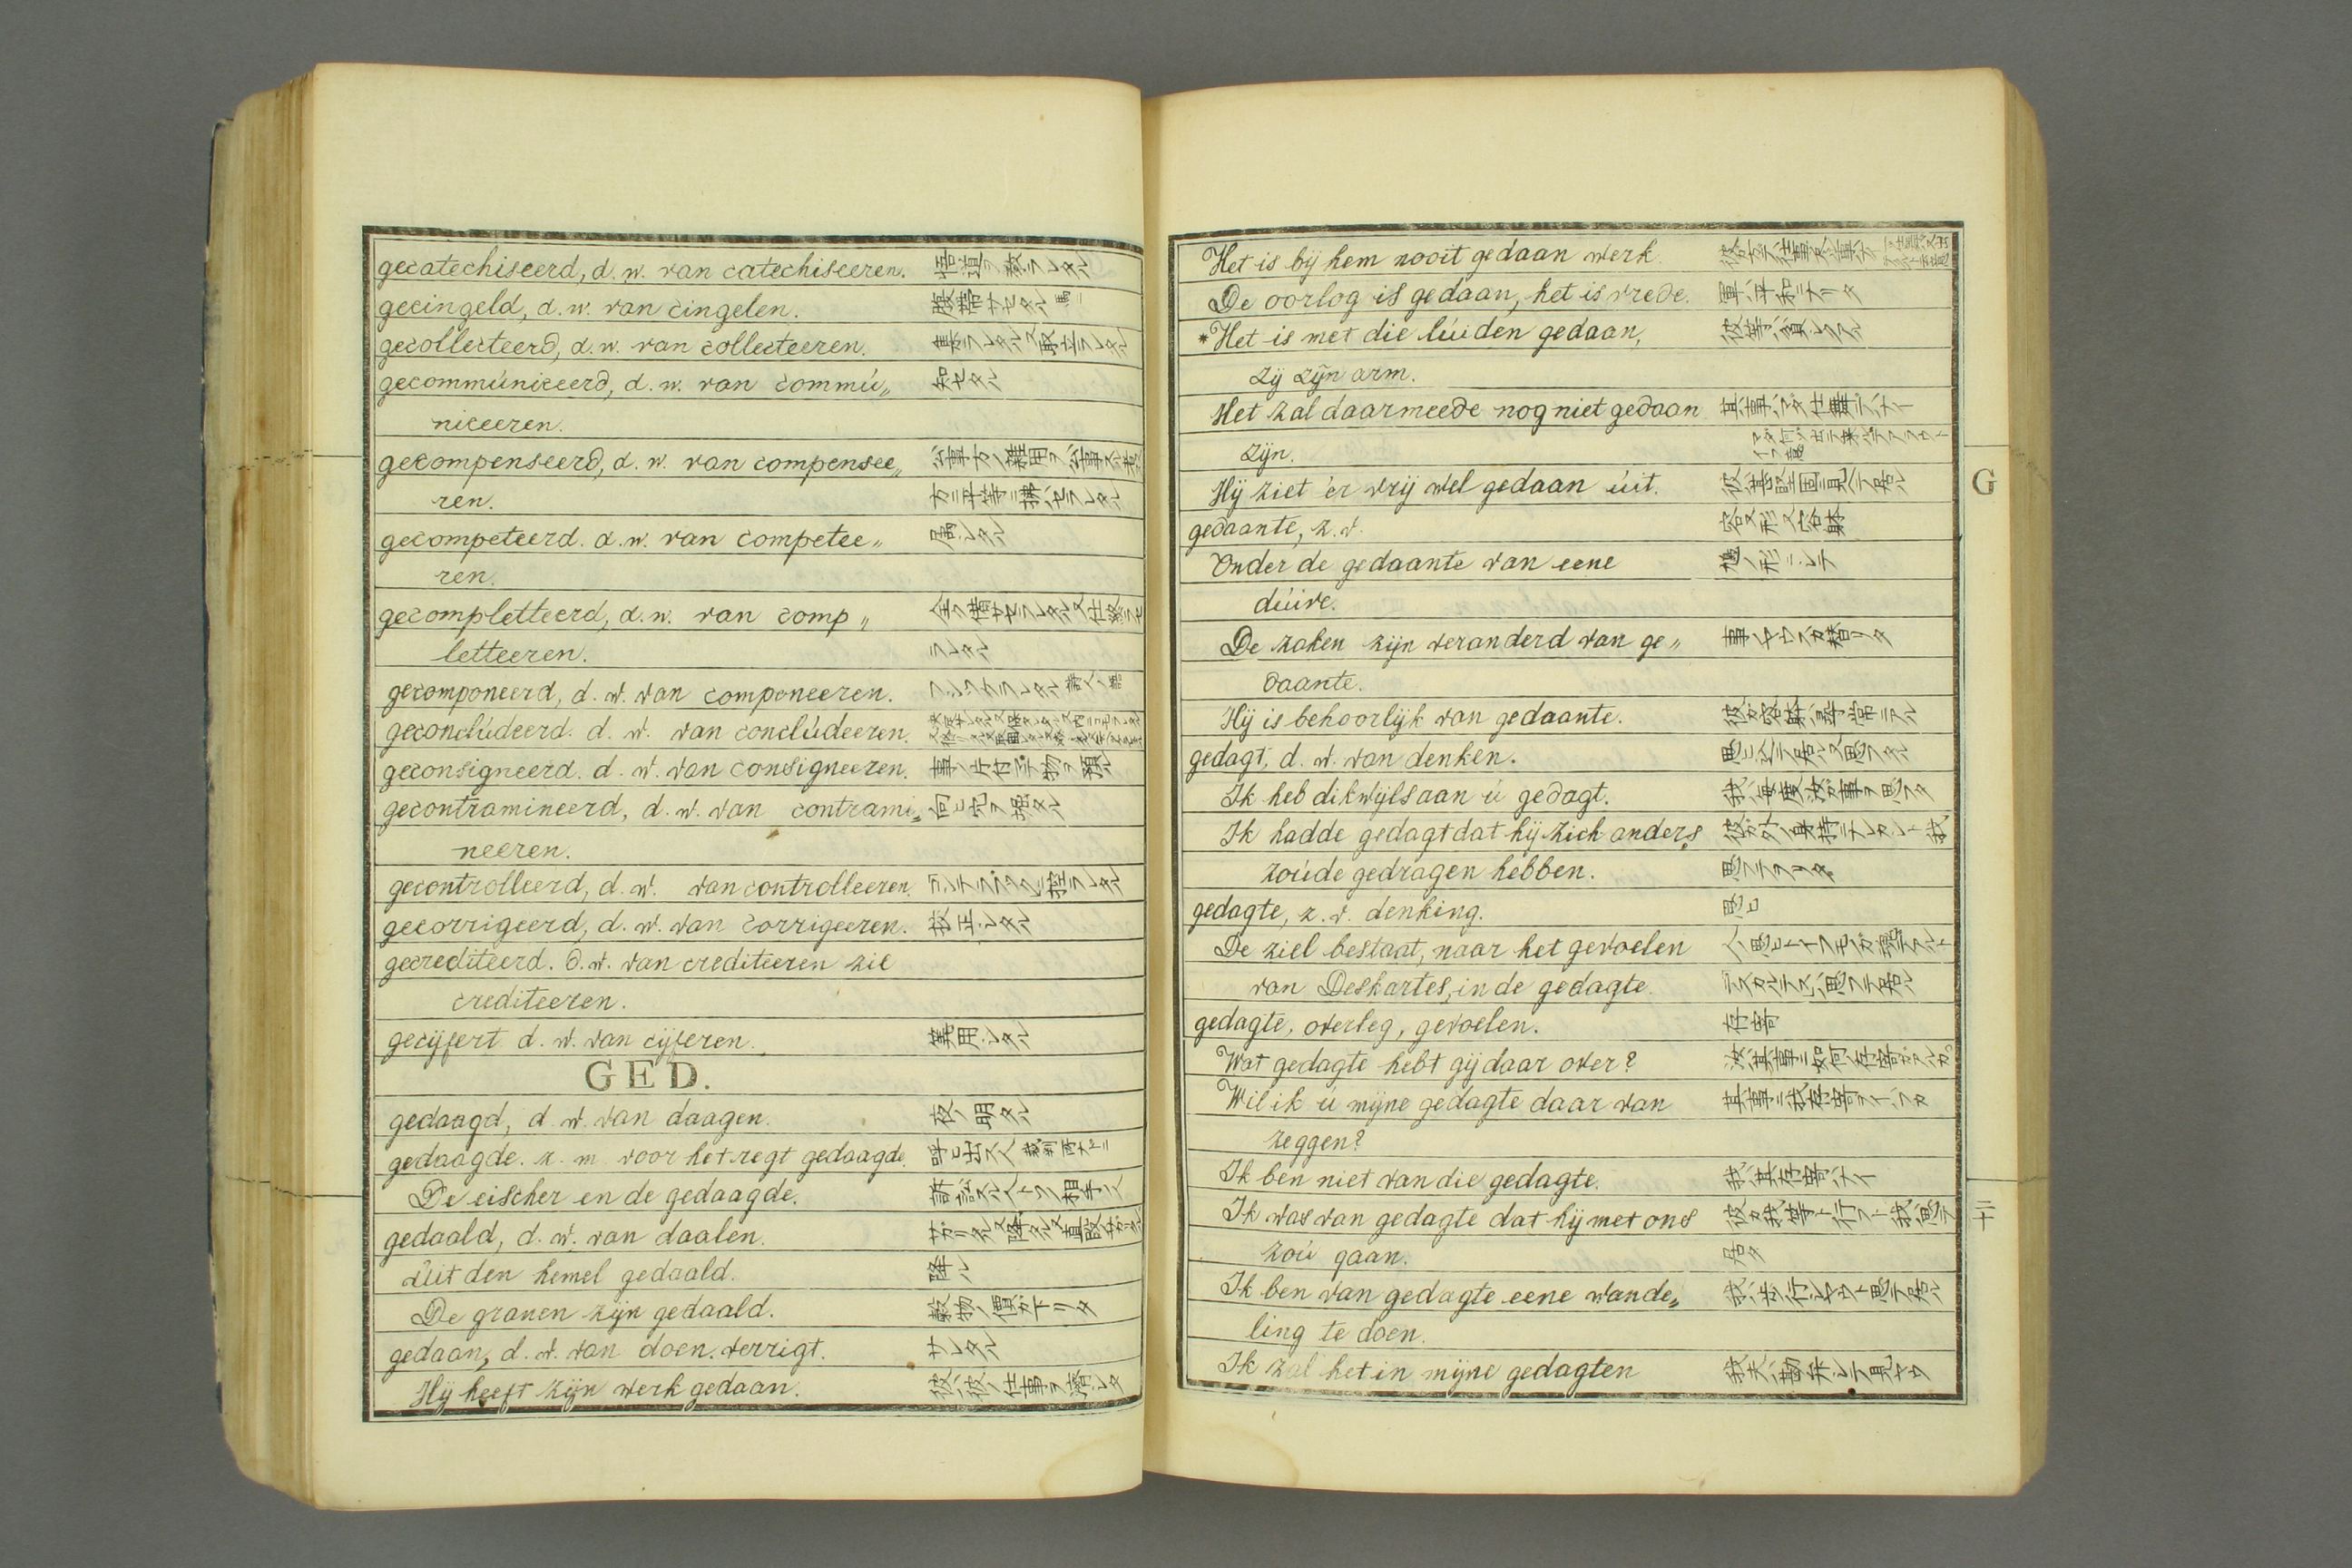 gecatechiseerd, d. w. van catechiseeren. 悟道ヲ教ラレタル
gecingeld, d. w. van cingelen. 腹帯サセタル 馬ニ
gecollecteerd, d. w. van collecteeren. 集ラレタル又取立ラレタル
gecommúniceerd, d. w. van commú〃 知セタル
niceeren.
gecompenseerd, d. w. van compensee〃
ren. 方ニ平等ニ拂ハセラレタル
gecompeteerd. d. w. van competee〃 属シタル
ren.
gecompletteerd, d. w. van comp〃
letteeren. ラレタル
gecomponeerd, d. w. van componeeren.
geconclúdeerd. d. w. van conclúdeeren.
geconsigneerd. d. w. van consigneeren.
gecontramineerd, d. w. van contrami〃 向ヒ穴ヲ堀タル
neeren.
gecontrolleerd, d. w. van controlleeren.
gecorrigeerd, d. w. van corrigeeren. 校正シタル
gecrediteerd. d. w. van crediteeren zie
crediteeren.
gecijfert d. w. van cijferen. 筭用シタル
GED.
gedaagd, d. w. van daagen. 夜ノ明タル
gedaagde. z. m. voor het regt gedaagde. 呼ヒ出ス人
De eischer en de gedaagde. 訴訟スル人ト其相手人
gedaald, d. w. van daalen.
úit den hemel gedaald. 降ル
De granen zijn gedaald. 穀物ノ價カ下リタ
gedaan, d. w. van doen. verrigt. サレタル
Hij heeft zijn werk gedaan. 彼ハ彼ノ仕事ヲ濟シタ
Het is bij hem nooit gedaan werk.
De oorlog is gedaan, het is vrede. 軍ハ平和ニナリタ
*Het is met die lúiden gedaan, 彼等ハ貧シクアル
zij zijn arm.
Het zal daarmeede nog niet gedaan 其事ハマダ仕舞デハナイ
zijn.
Hij ziet er vrij wel gedaan úit. 彼ハ甚堅固ニ見ヘテ居ル
gedaante, z. v. 容又形又容躰
Onder de gedaante van eene 鳩ノ形ニシテ
dúive.
De zaken zijn veranderd van ge〃 事ノヤウスカ替リタ
daante.
Hij is behoorlijk van gedaante. 彼カ容躰ハ尋常ニアル
gedagt, d. w. van denken.
Ik heb dikwijls aan ú gedagt. 我ハ毎度汝カ事ヲ思フタ
Ik hadde gedagt dat hij zich anders
zoúde gedragen hebben. 思フテアリタ
gedagte, z. v. denking. 思ヒ
De ziel bestaat, naar het gevoelen
van Deskartes, in de gedagte. デスカルテスハ思フテ居ル
gedagte, overleg, gevoelen. 存寄
Wat gedagte hebt gij daar over? 汝ハ其事ニ如何ノ存寄ガアルカ。
Wil ik ú mijne gedagte daar van 其事ニ我存寄ヲイハフカ
zeggen?
Ik ben niet van die gedagte. 我ハ其存寄ハナイ
Ik was van gedagte dat hij met ons 彼カ我等ト行フト我ハ思テ
zoú gaan. 居タ
Ik ben van gedagte eene wande〃 我ハ歩行シヤウト思テ居ル
ling te doen.
Ik zal het in mijne gedagten 我夫ハ勘弁シテ見ヤウ
G